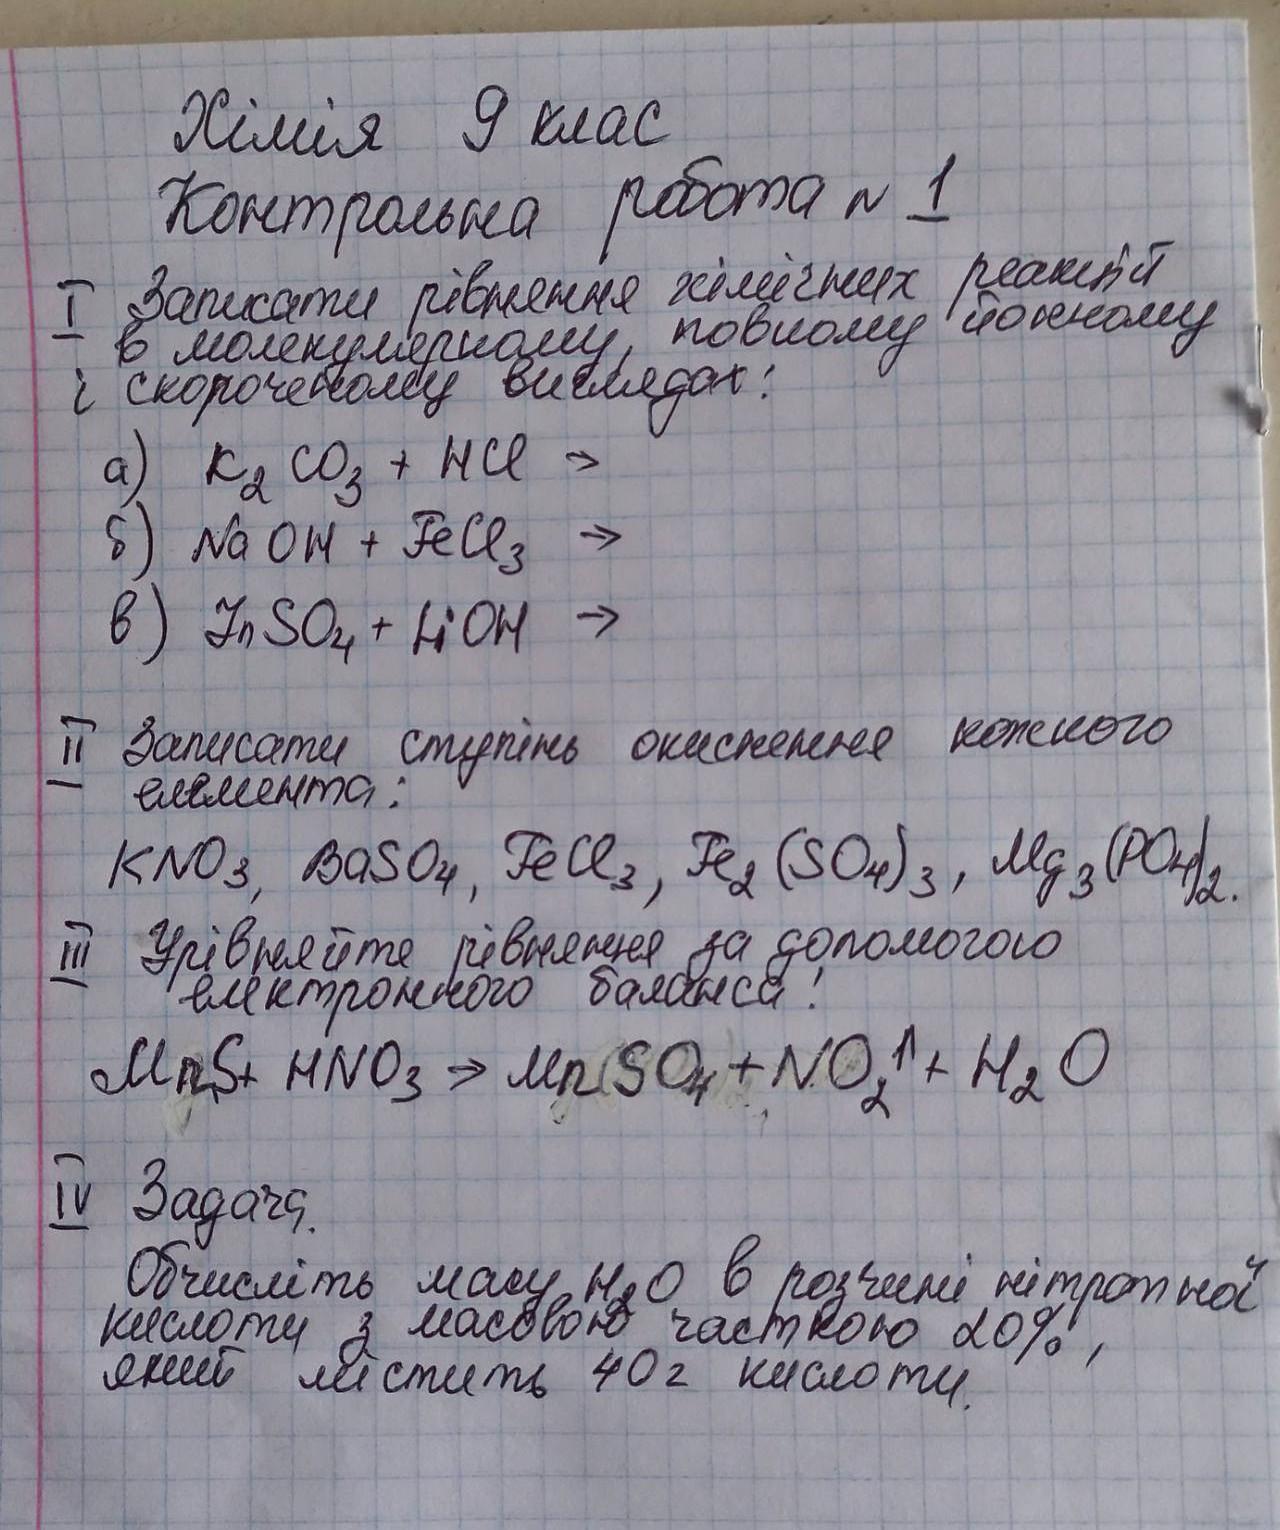 Хімія 9 клас
Контрольна робота N 1
I Записати рівняння хімічних реакцій
в молекулярному, повному йонному
і скороченому виглядах:
а) K2CO3 + HCl →
б) NaOH + FeCl3 →
в) ZnSO4 + LiOH →
II Записати ступінь окиснення кожного
елемента:
KNO3, BaSO4, FeCl3, Fe2(SO4)3, Mg3(PO4)2.
III Урівняйте рівняння за допомогою
електронного баланса:
MnS + HNO3 → MnSO4 + NO2↑ + H2O
IV Задача.
Обчисліть масу H2O в розчині нітратної
кислоти з масовою часткою 20%,
який містить 40г кислоти.